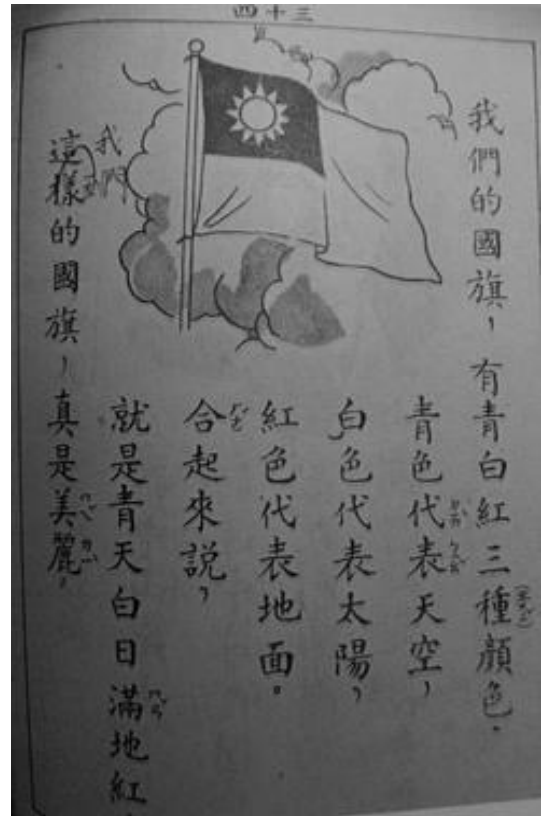 四十三
我們的國旗，有青白紅三種顏色。
青色代表天空，
白色代表太陽，
紅色代表地面。
合起來說，
就是青天白日滿地紅
這樣的國旗，真是美麗，
我們